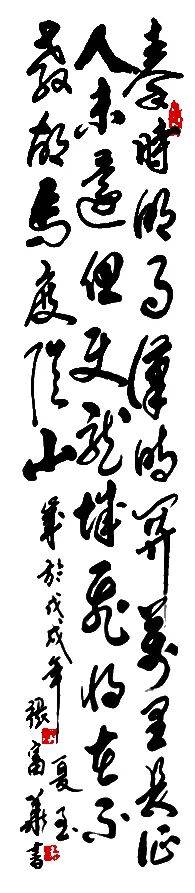 秦時明月漢時關萬里長征
人未還但使龍城飛將在不
教胡馬度陰山
歲於戊戌年
夏至
張富華書